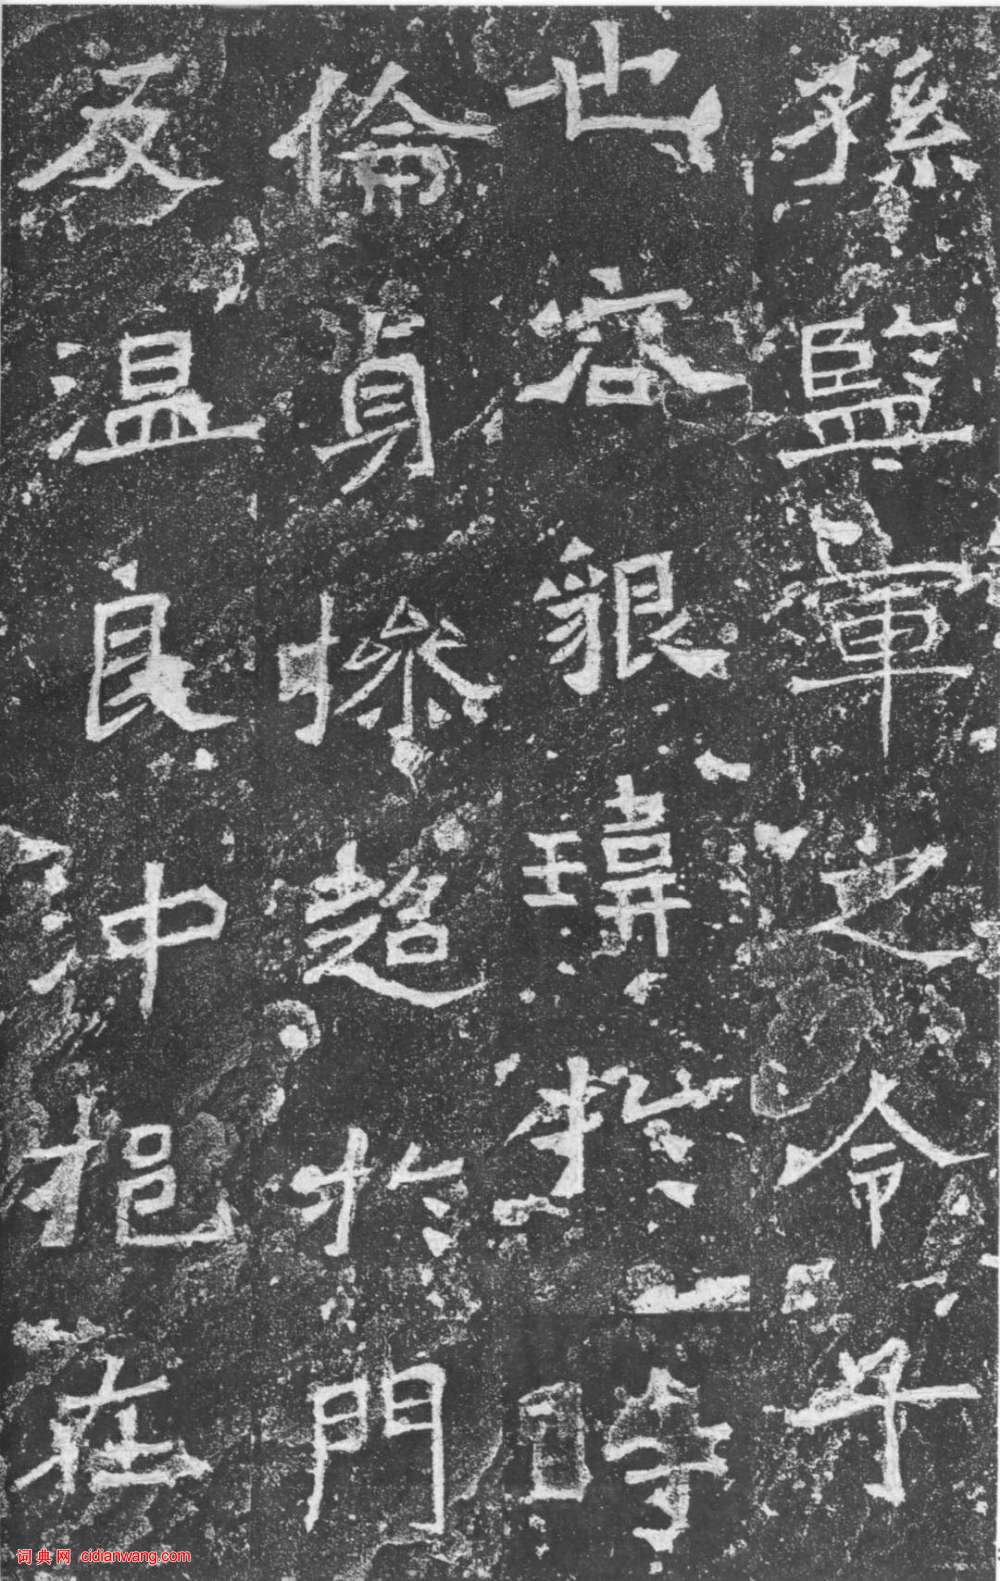 孫監軍之令子
也容貌瑋於時
倫貞操超於門
友温良沖挹在
词典网 cidianwang.com